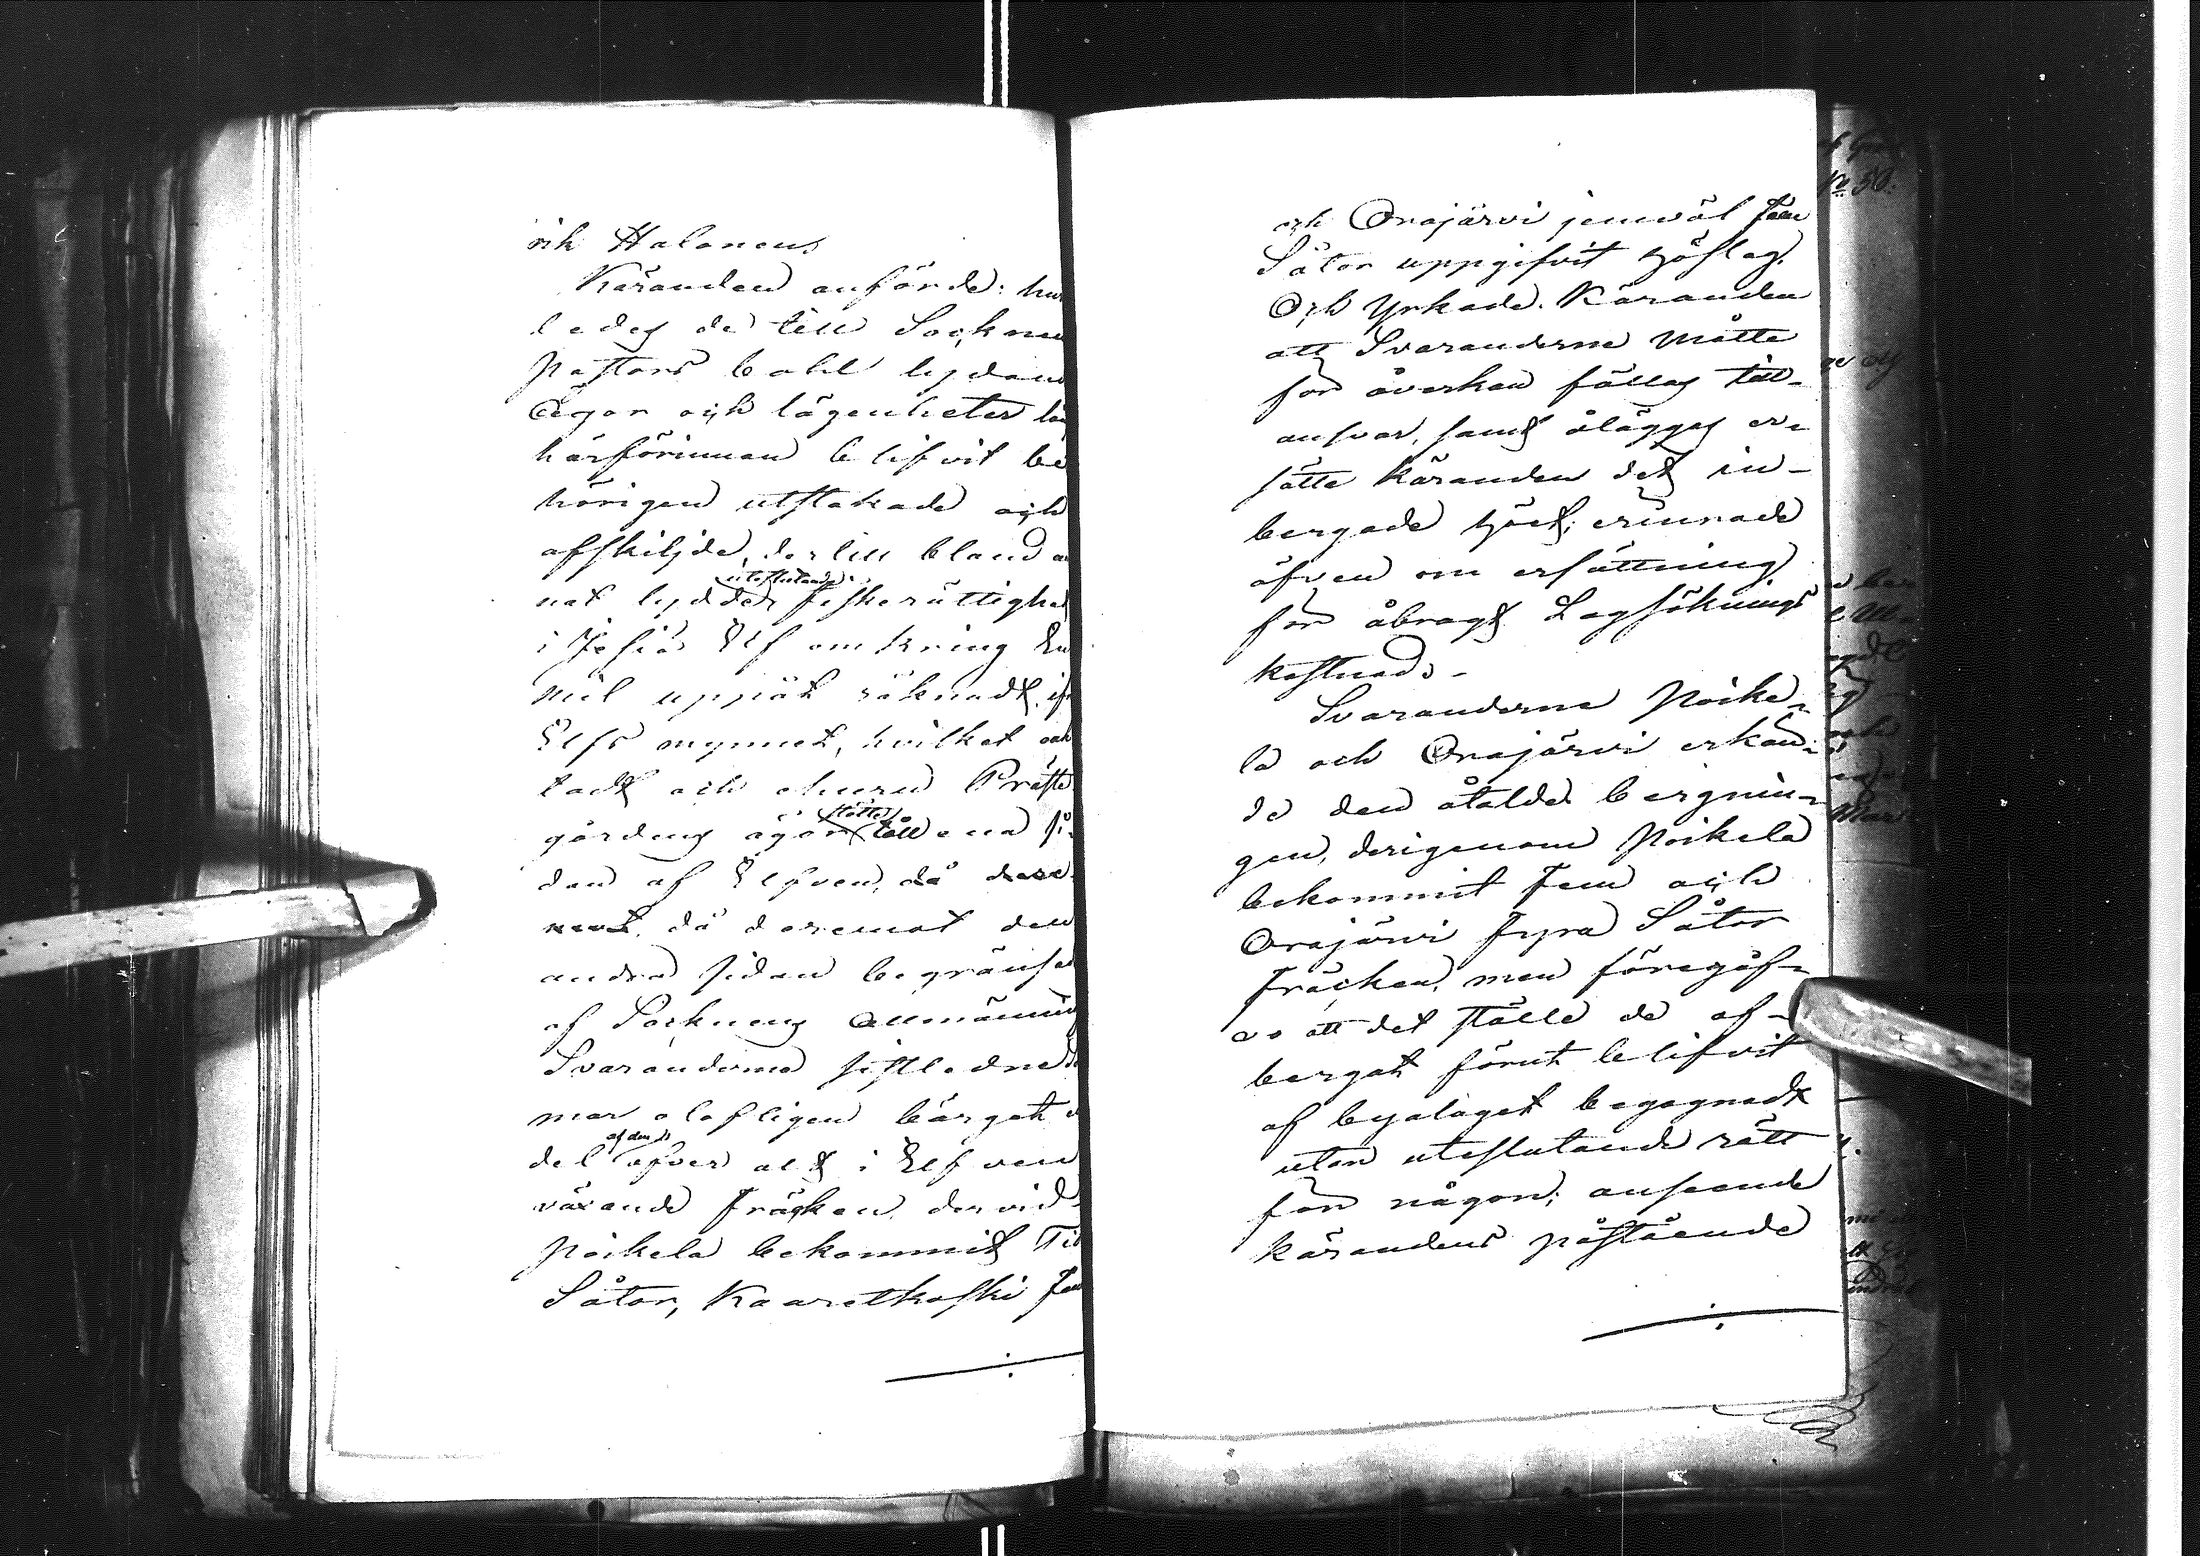 rik Halonens
Käranden anförde: hur
ledes de till Sockne
pastors bohl lydan
Ägor och lägenheter
härförinnan blifvit be
hörigen utstakade och
afskiljde, dertill bland a
uteslutande
nat lydde fiskerättighet
i Jesiö Elf omkring En
mil uppåt räknadt, if
Elfs mynnet, hvilket
tadt och ehuru Präste
stötte
gårdens ägor till ena si
dan af Elfven, då dere
mot, då deremot den
andra sidan begränsa
af Socknens Allmänning
Svaranderne sistledne
mar olofligen bärgat
af den
del öfver alt i Elfven
växande Fräcken, dervid
Poikela bekommit Tio
Såtar, Kaaretkoski Fem
och Orajärvi jemväl Fem
Såtar uppgifvit höslag.
Och Yrkade Käranden
att Svaranderne måtte
för åverkan fällas till
ansvar, samt åläggas er-
sätte Käranden det in-
bergade höet; erinrade
äfven om ersättning
för åbragt Lagsöknings
kostnad.-
Svaranderne Poike-
la och Orajärvi erkän-
de den åtalde bergnin-
gen, derigenom Poikela
bekommit Fem och
Orajärvi Fyra Såtar
Fräcken, men föregåf-
vo att det ställe de af-
bergat förut blifvit
af byalaget begagnadt
utan uteslutande rätt
för någon; anseende
kärandens påstående